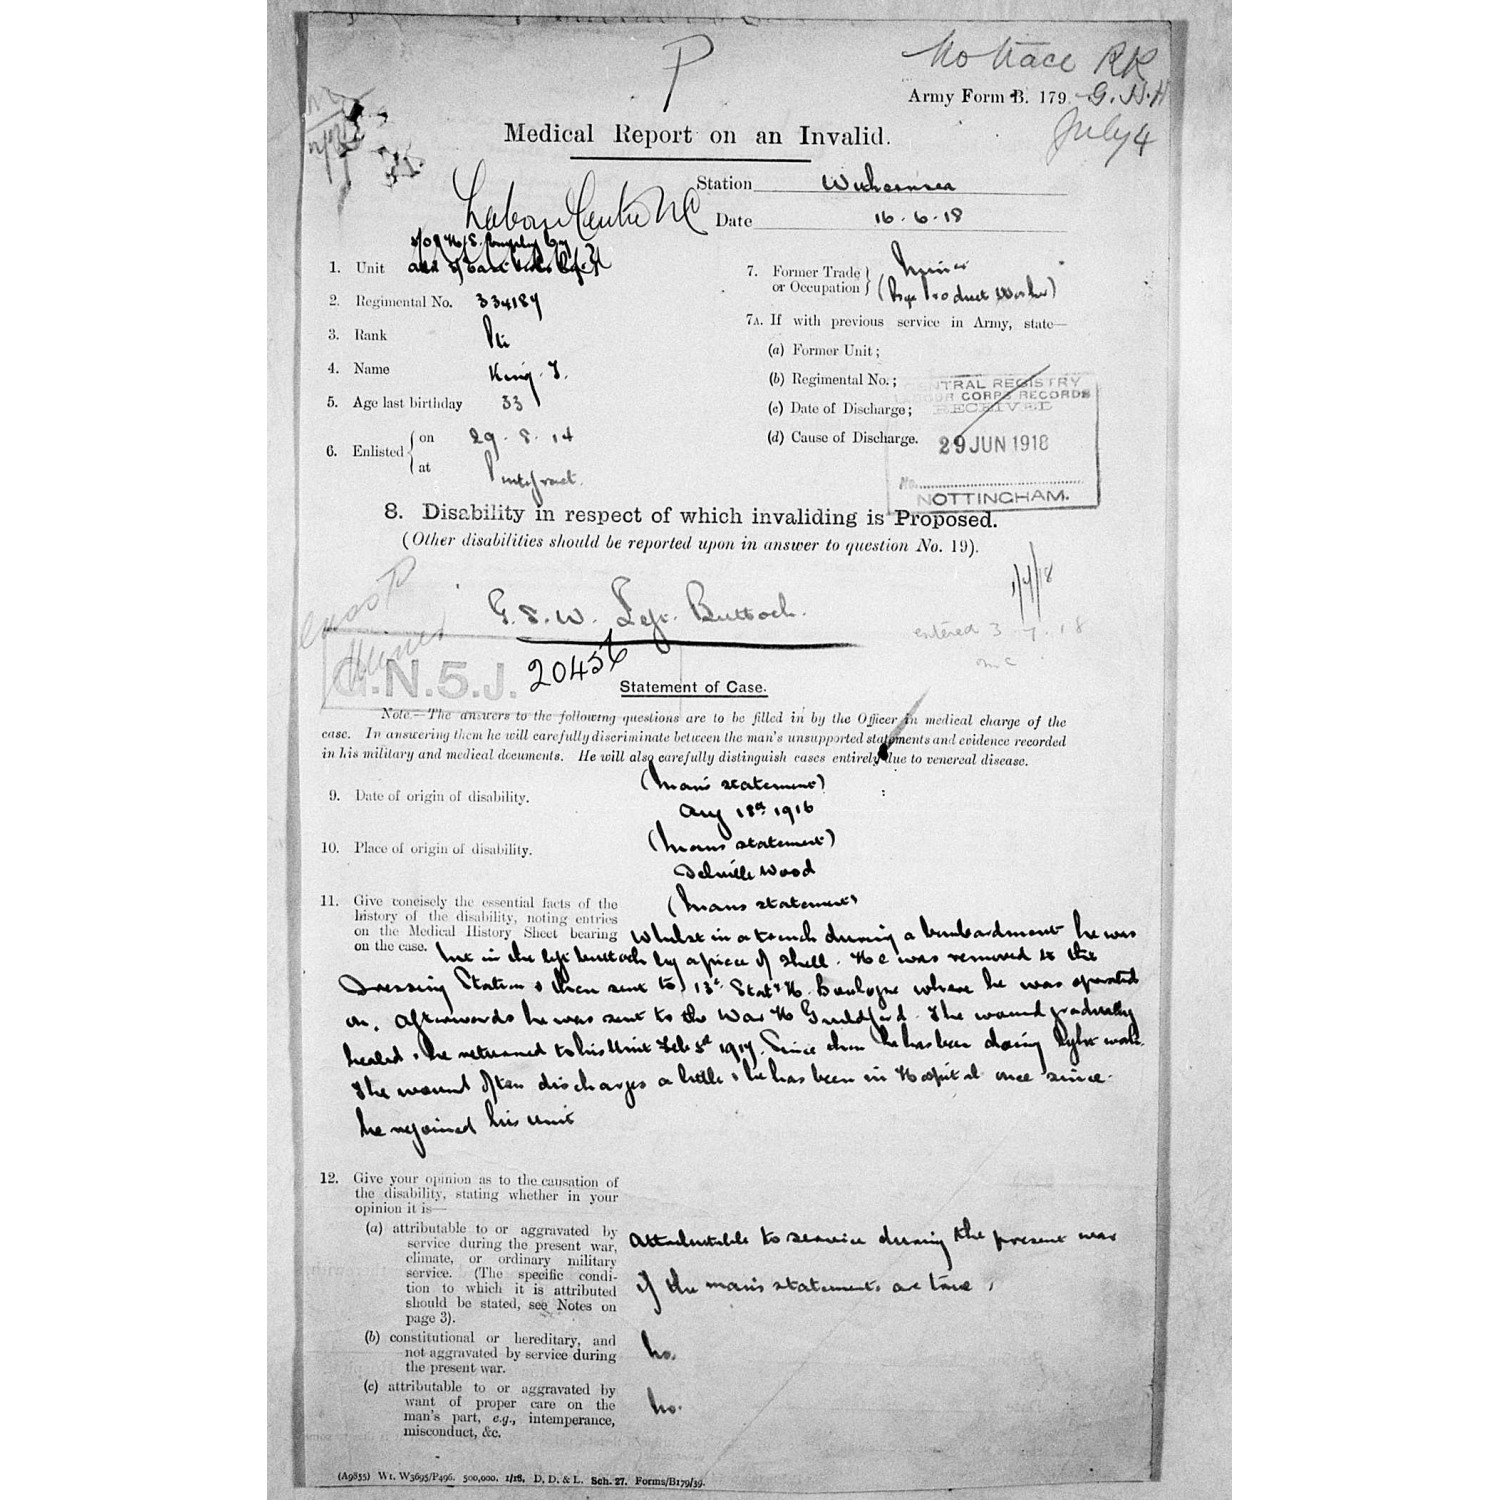 P
No trace RR
Army Form B. 179.
G.N.H
July 4
Medical Report on an Invalid.
Station Withernsea
Labour Centre
Date 16-6-18
1. Unit
2. Regimental No. 334184
3. Rank Pte
4. Name King. J.
5. Age last birthday 33
6. Enlisted { on 29-8-14
at Pontefract.
7. Former Trade or Occupation } Miner
(Bye Product Worker)
7A. If with previous service in Army, state—
(a) Former Unit;
(b) Regimental No.;
(c) Date of Discharge;
(d) Cause of Discharge.
CENTRAL REGISTRY
LABOUR CORPS RECORDS
RECEIVED
29 JUN 1918
No.
NOTTINGHAM.
8. Disability in respect of which invaliding is Proposed.
(Other disabilities should be reported upon in answer to question No. 19).
G.S.W. Left. Buttock.
1/7/18
entered 3-7-18
G.N.5.J.
20456
Statement of Case.
Note.—The answers to the following questions are to be filled in by the Officer in medical charge of the
case. In answering them he will carefully discriminate between the man's unsupported statements and evidence recorded
in his military and medical documents. He will also carefully distinguish cases entirely due to venereal disease.
9. Date of origin of disability.
(Mans statement)
Aug 18th 1916
10. Place of origin of disability.
(Mans statement)
Delville Wood
11. Give concisely the essential facts of the
history of the disability, noting entries
on the Medical History Sheet bearing
on the case.
(Mans statement)
Whilst in a trench during a bombardment he was
hit in the left buttock by a piece of shell. He was removed to the
Dressing Station & then sent to 13th Stat. H. Boulogne where he was operated
on. Afterwards he was sent to the War H Guildford. The wound gradually
healed & he returned to his Unit Feb 3rd 1917. Since then he has been doing light work.
The wound often discharges a little & he has been in Hospital once since
he rejoined his unit
12. Give your opinion as to the causation of
the disability, stating whether in your
opinion it is—
(a) attributable to or aggravated by
service during the present war,
climate, or ordinary military
service. (The specific condi-
tion to which it is attributed
should be stated, see Notes on
page 3).
Attributable to service during the present war
if the man's statements are true.
(b) constitutional or hereditary, and
not aggravated by service during
the present war.
No.
(c) attributable to or aggravated by
want of proper care on the
man's part, e.g., intemperance,
misconduct, &c.
No.
(A9855) Wt. W3695/P496. 500,000. 1/18. D. D. & L. Sch. 27. Forms/B179/39.